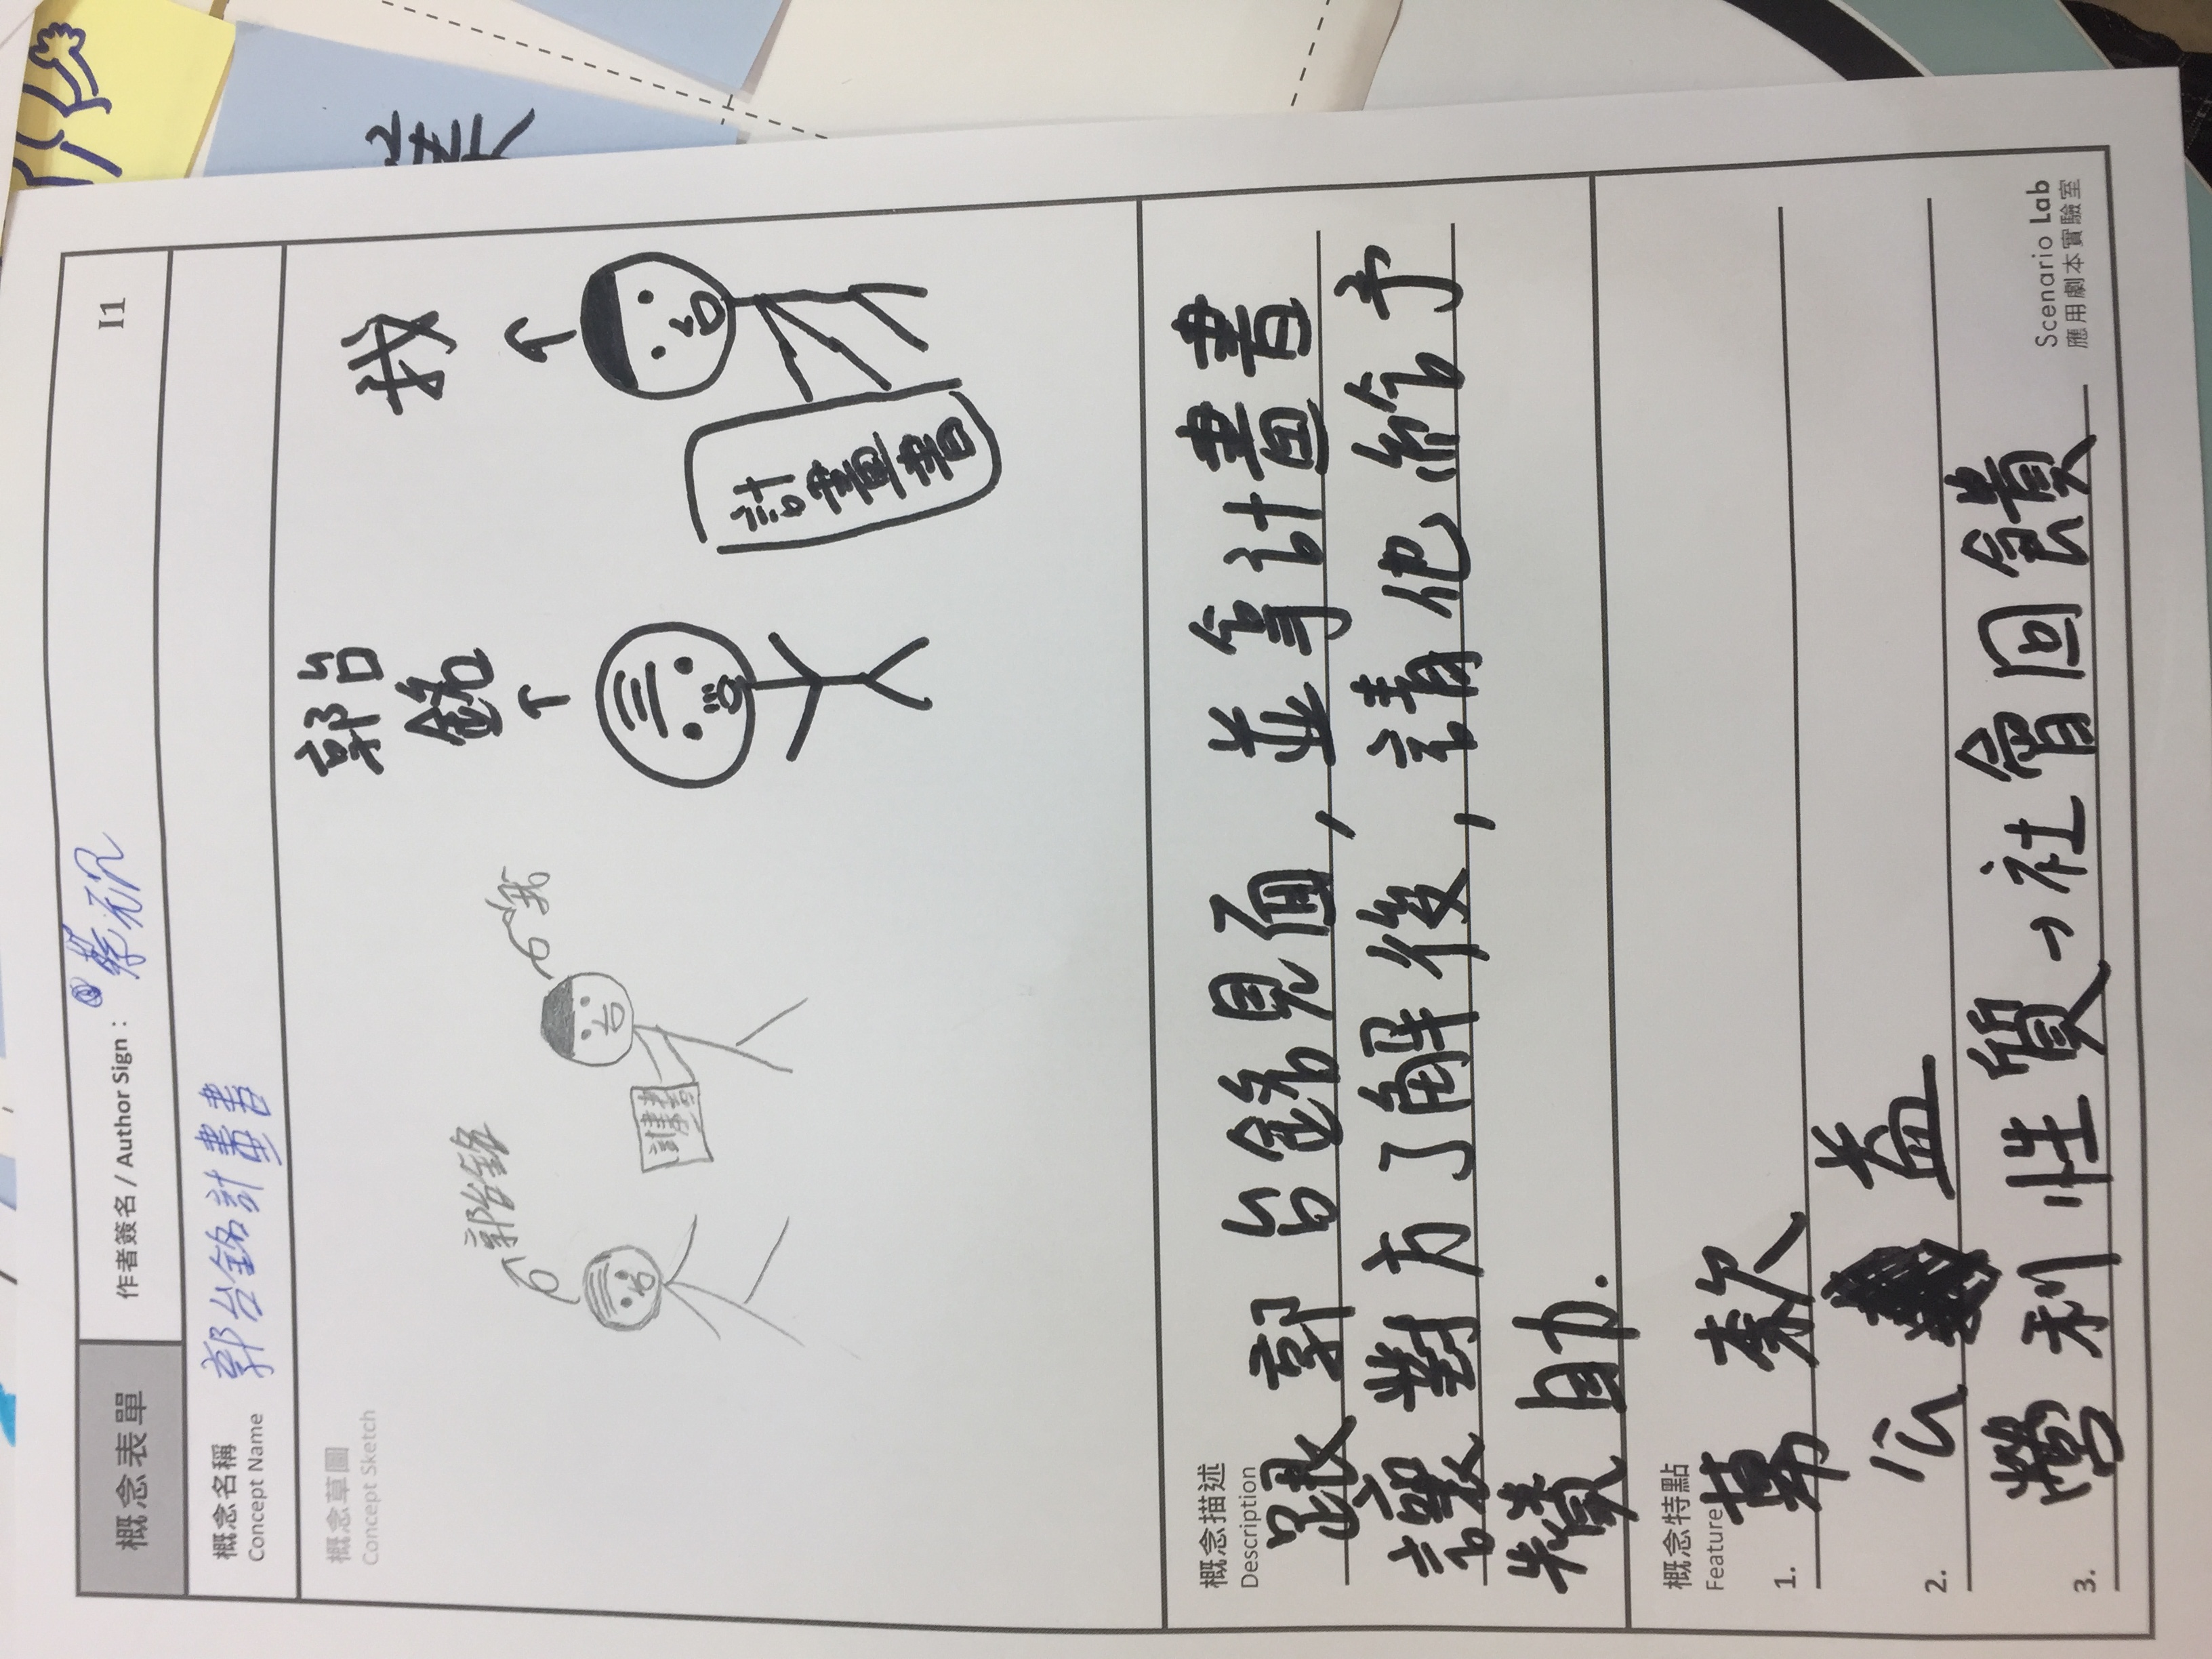 概念表單
作者簽名 / Author Sign：蔡元
I1
概念名稱
Concept Name
郭台銘計畫書
概念草圖
Concept Sketch
郭台銘
我
計畫書
郭台
銘
我
計畫書
概念描述
Description
跟郭台銘見面,並拿計畫書
讓對方了解後,請他給予
贊助.
概念特點
Feature
1. 募款
2. 公益
3. 營利性質→社會回饋
Scenario Lab
應用劇本實驗室